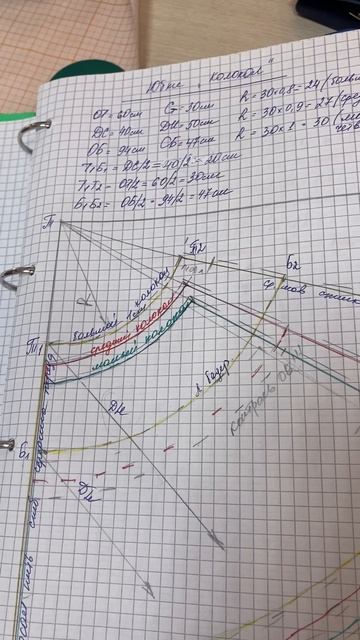 Юбка "колокол"
ОТ = 60см Ст = 30см R = 30×0,8 = 24 (больш
ДС = 40см Ди = 50см R = 30×0,9 = 27 (сре
ОБ = 94см Сб = 47см R = 30×1 = 30 (ма
Т₁Б₁ = ДС/2 = 40/2 = 20см
Т₁Т₂ = ОТ/2 = 60/2 = 30см
Б₁Б₂ = ОБ/2 = 94/2 = 47см
Т
Т2
Б2
R
большой колокол
средний колокол
малый колокол
Т₁
л. бедер
контроль
Ди
Б₁
Ди
середина перед
сгиб